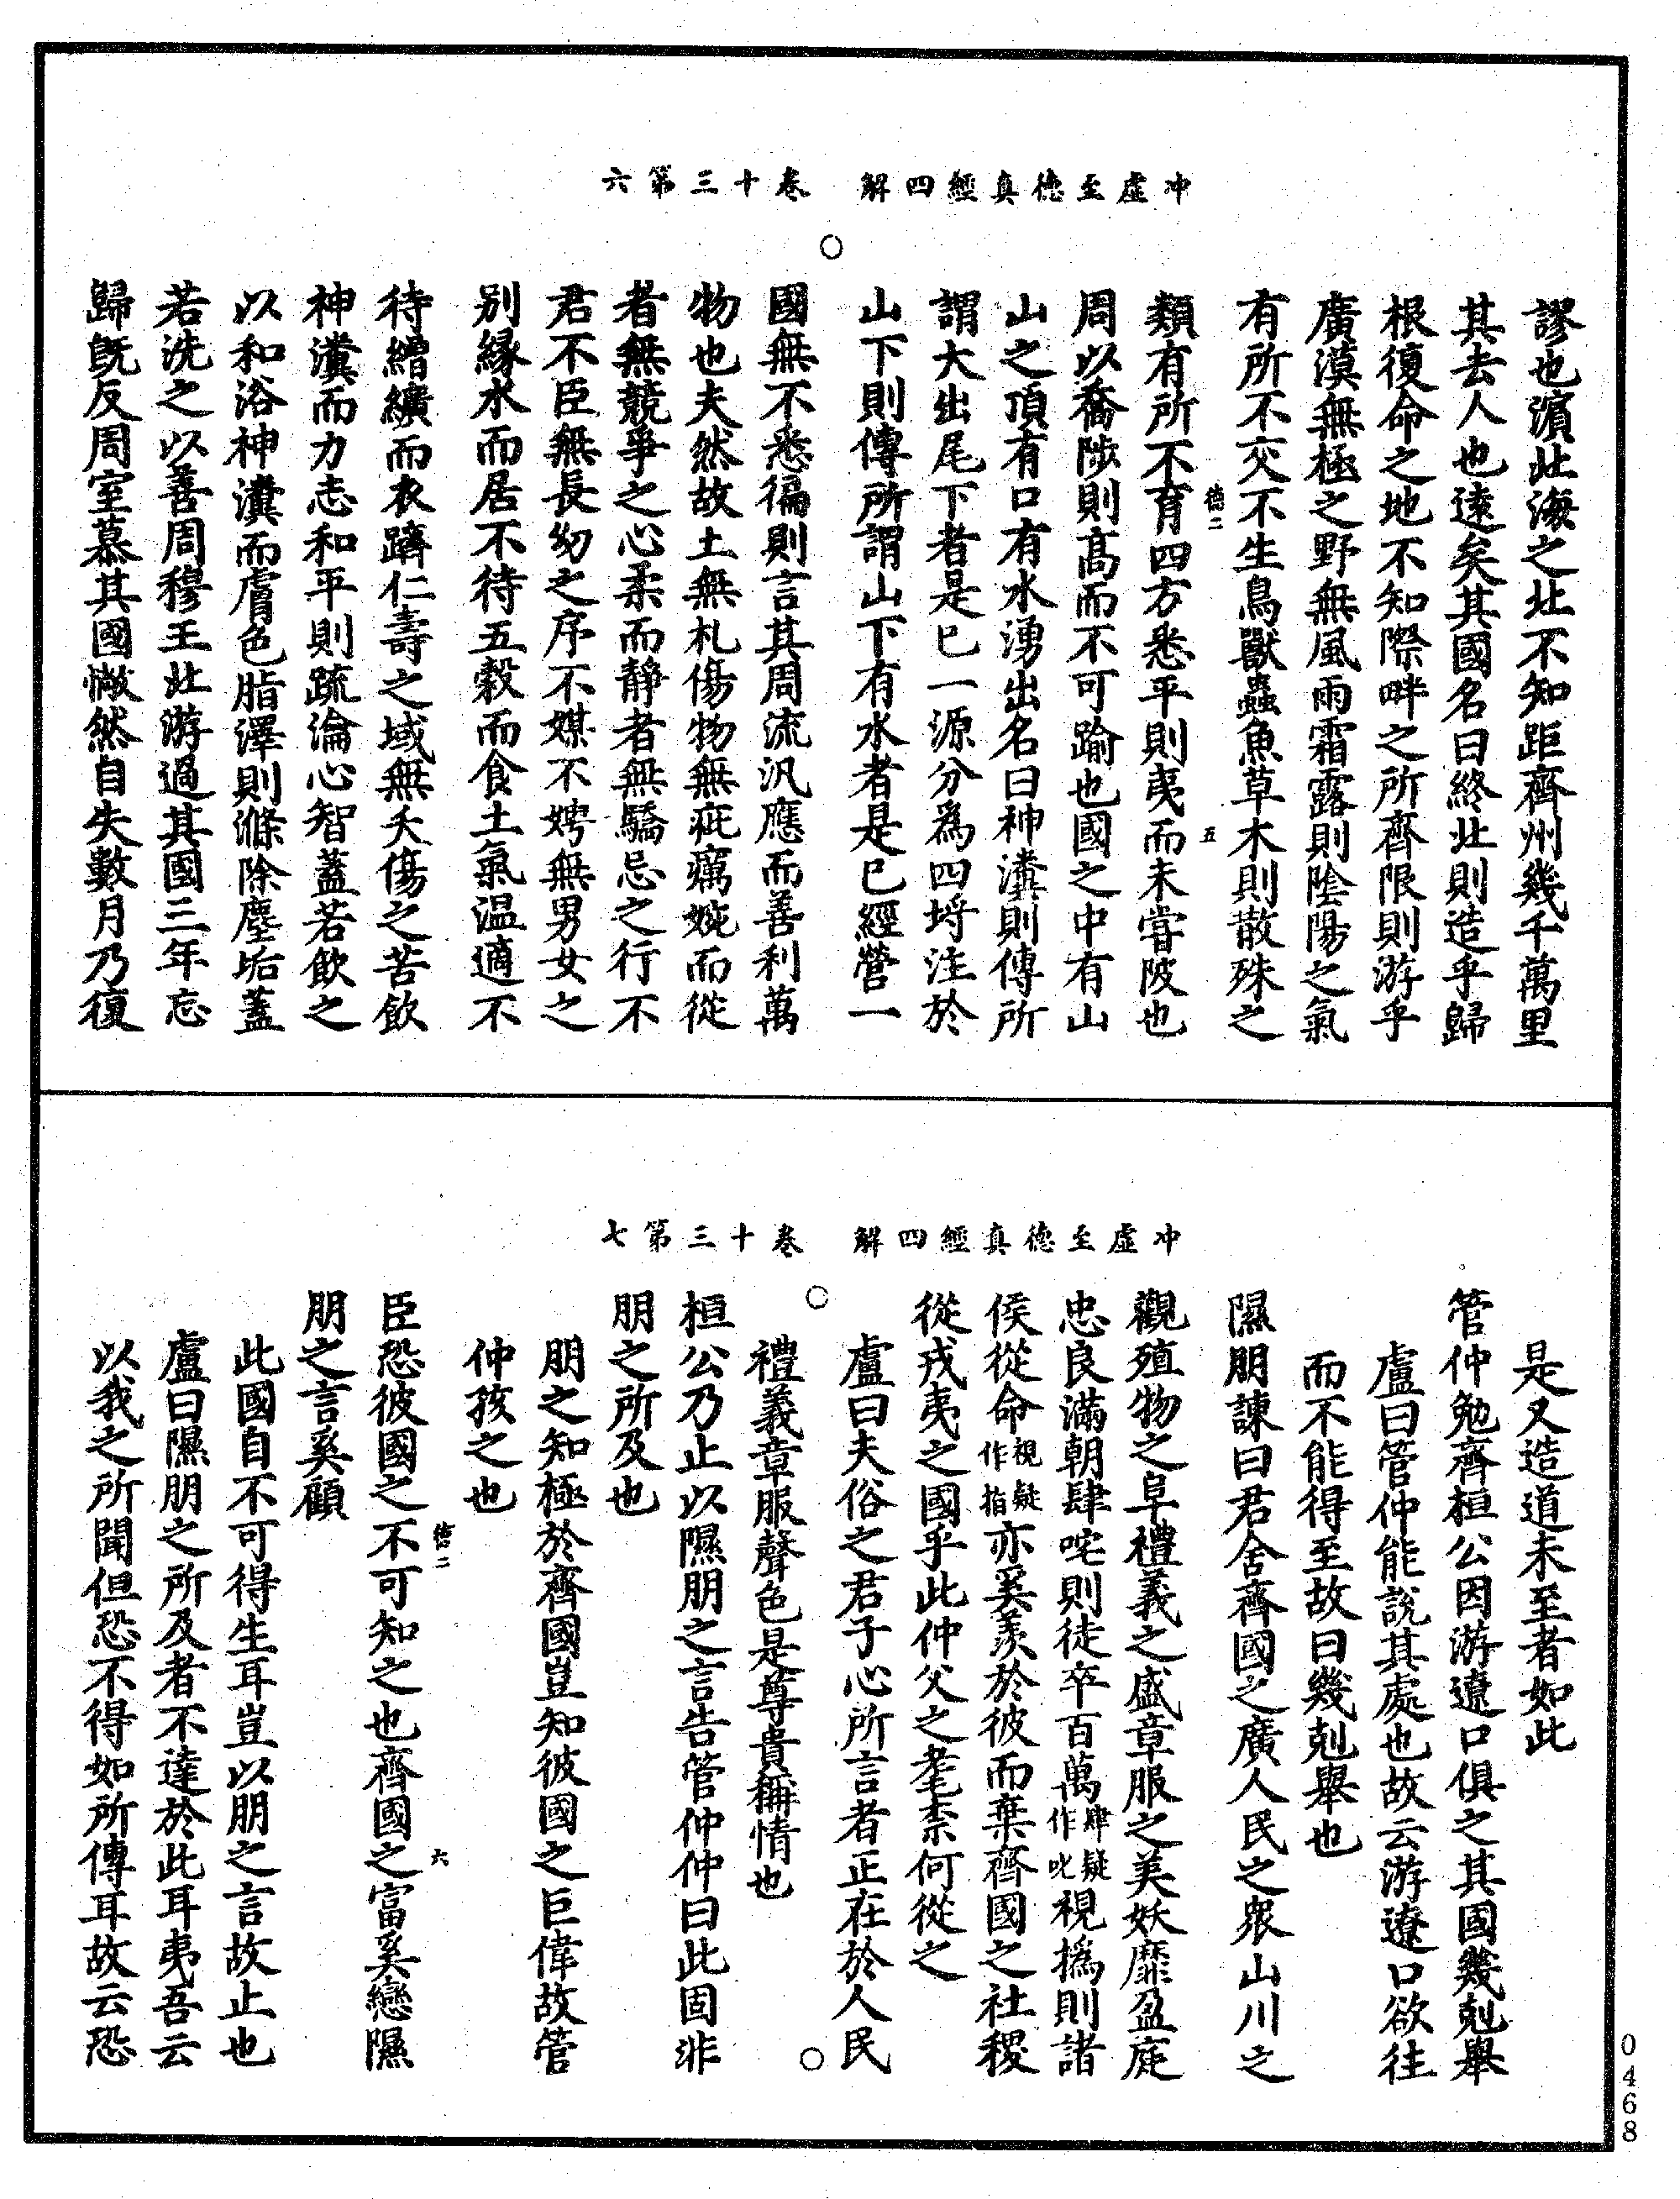 冲虛至德真經四解　卷十三第六
謬也濵北海之北不知距齊州幾千萬里
其去人也遠矣其國名曰終北則造乎歸
根復命之地不知際畔之所齊限則游乎
廣漠無極之野無風雨霜露則陰陽之氣
有所不交不生鳥獸蟲魚草木則散殊之
德二　五
類有所不育四方悉平則夷而未嘗陂也
周以喬陟則髙而不可踰也國之中有山
山之頂有口有水湧出名曰神瀵則傳所
謂大出尾下者是已一源分為四埒注於
山下則傳所謂山下有水者是已經營一
國無不悉徧則言其周流汎應而善利萬
物也夫然故土無札傷物無疵癘婉而從
者無競爭之心柔而靜者無驕忌之行不
君不臣無長幼之序不媒不娉無男女之
别緣水而居不待五榖而食土氣温適不
待繒纊而衣躋仁壽之域無夭傷之苦飲
神瀵而力志和平則疏瀹心智蓋若飲之
以和浴神瀵而膚色脂澤則滌除塵垢蓋
若洗之以善周穆王北游過其國三年忘
歸旣反周室慕其國惝然自失數月乃復
冲虛至德真經四解　卷十三第七
是又造道未至者如此
管仲勉齊桓公因游遼口俱之其國幾尅舉
盧曰管仲能說其處也故云游遼口欲往
而不能得至故曰幾尅舉也
隰朋諫曰君舍齊國之廣人民之衆山川之
觀殖物之阜禮義之盛章服之美妖靡盈庭
忠良滿朝肆咤則徒卒百萬肆疑作叱視撝則諸
侯從命視疑作指亦奚羨於彼而棄齊國之社稷
從戎夷之國乎此仲父之耄柰何從之
盧曰夫俗之君子心所言者正在於人民
禮義章服聲色是尊貴稱情也
桓公乃止以隰朋之言告管仲仲曰此固非
朋之所及也
朋之知極於齊國豈知彼國之巨偉故管
仲孩之也
德二　六
臣恐彼國之不可知之也齊國之富奚戀隰
朋之言奚顧
此國自不可得生耳豈以朋之言故止也
盧曰隰朋之所及者不達於此耳夷吾云
以我之所聞但恐不得如所傳耳故云恐
0468